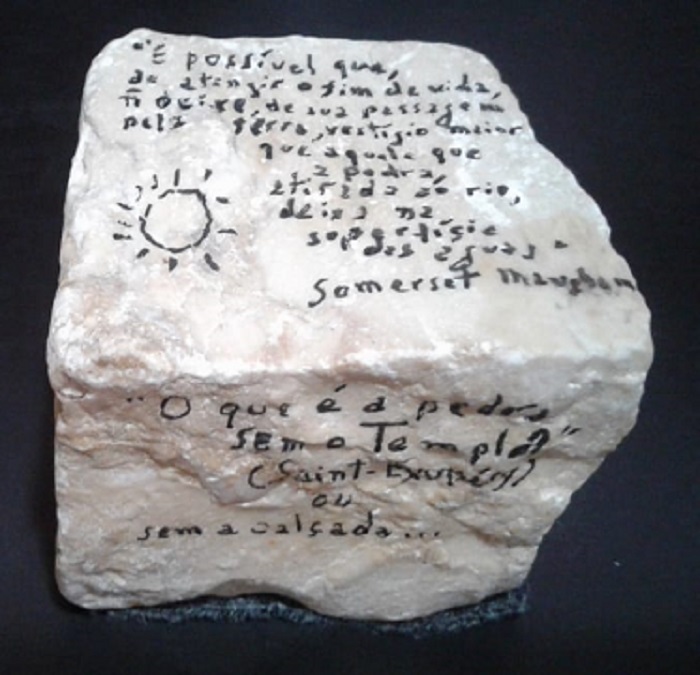 "É possível que,
ao atingir o fim de vida,
ñ deixe, de sua passagem
pela terra, vestígio maior
que aquele que
a pedra,
atirada ao rio,
deixa na
superfície
das águas"
Somerset Maugham
"O que é a pedra
sem o Templo?"
(Saint-Exupéry)
ou
sem a calçada...